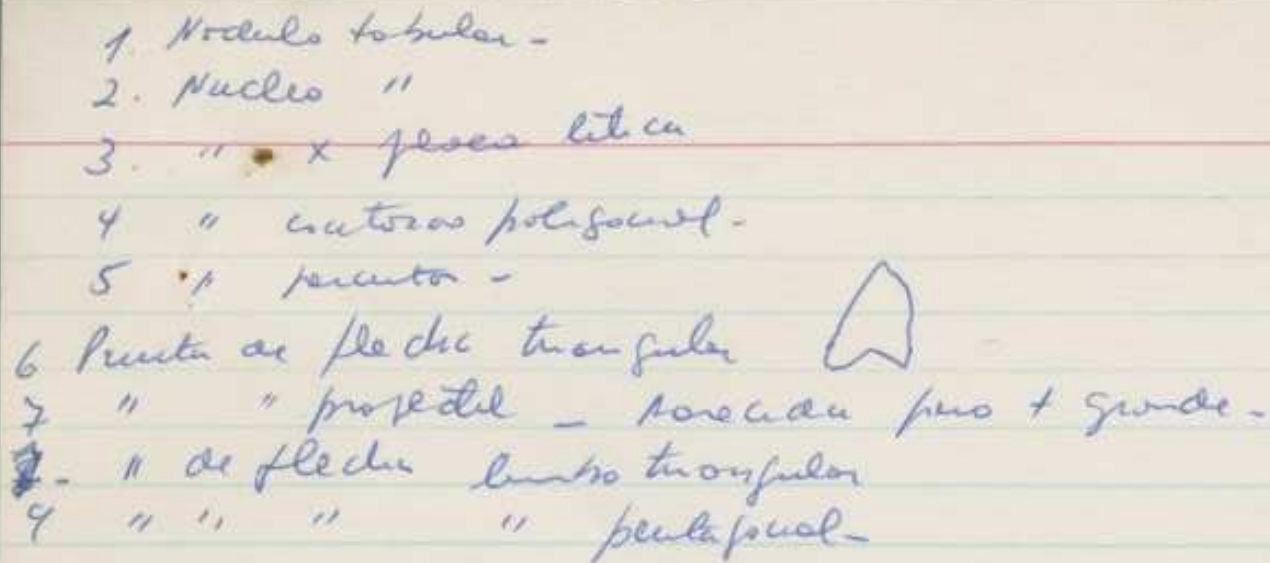 1. Nodulo tabular -
2. Nucleo "
3. " x lítica
4 " contorno poligonal -
5 " percutor -
6 Punta de flecha triangular
7 " " proyectil - parecida pero + grande -
- " de flecha limbo triangular
9 " " " " pentagonal -